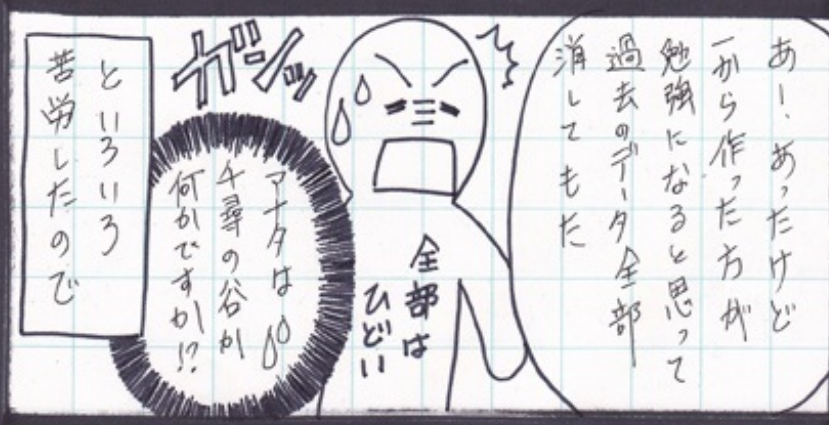 あー、あったけど
一から作った方が
勉強になると思って
過去のデータ全部
消してもた
ガシッ
全部は
ひどい
アナタは
千尋の谷か
何かですか!?
といろいろ
苦労したので